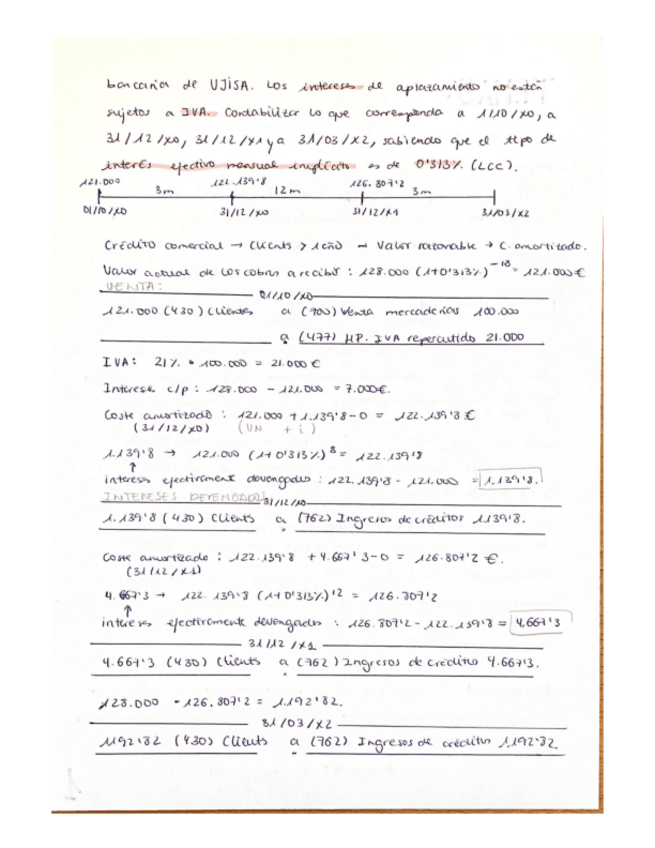 bancaria de UJISA. Los intereses de aplazamiento no están
sujetos a IVA. Contabilizar lo que corresponda a 1/10/x0, a
31/12/x0, 31/12/x1 y a 31/03/x2, sabiendo que el tipo de
interés efectivo mensual implícito es de 0'313% (LCC).
121.000 122.139'8 126.807'2
3m 12m 3m
01/10/x0 31/12/x0 31/12/x1 31/03/x2
Crédito comercial → Clients > 1 año → Valor razonable → C. amortizado.
Valor actual de los cobros a recibir : 128.000 (1+0'313%)^-18 = 121.000€
VENTA:
01/10/x0
121.000 (430) Clientes a (700) Venta mercaderías 100.000
a (477) HP. IVA repercutido 21.000
IVA: 21% • 100.000 = 21.000 €
Intereses c/p : 128.000 - 121.000 = 7.000€.
Coste amortizado : 121.000 + 1.139'8 - 0 = 122.139'8 €
(31/12/x0) (VN + i)
1.139'8 → 121.000 (1+0'313%)^3 = 122.139'8
↑
intereses efectivament devengados : 122.139'8 - 121.000 = 1.139'8.
INTERESES DEVENGADOS
31/12/x0
1.139'8 (430) Clients a (762) Ingresos de créditos 1.139'8.
Coste amortizado : 122.139'8 + 4.667'3 - 0 = 126.807'2 €.
(31/12/x1)
4.667'3 → 122.139'8 (1+0'313%)^12 = 126.807'2
↑
intereses efectivament devengados : 126.807'2 - 122.139'8 = 4.667'3
31/12/x1
4.667'3 (430) Clients a (762) Ingresos de créditos 4.667'3.
128.000 - 126.807'2 = 1.192'82.
31/03/x2
1192'82 (430) Clients a (762) Ingresos de créditos 1.192'82.